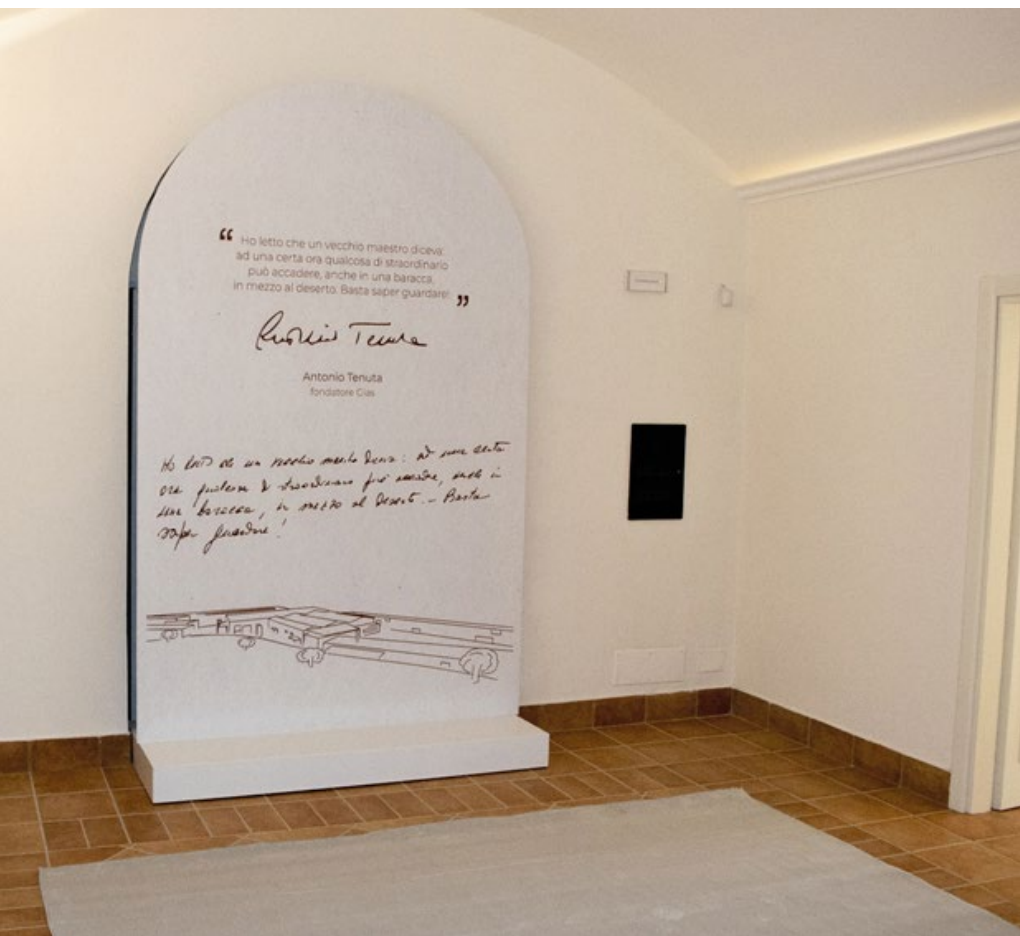 “ Ho letto che un vecchio maestro diceva:
ad una certa ora qualcosa di straordinario
può accadere, anche in una baracca,
in mezzo al deserto. Basta saper guardare! ”
Antonio Tenuta
Antonio Tenuta
fondatore Cias
Ho letto che un vecchio maestro diceva: ad una certa
ora qualcosa di straordinario può accadere, anche in
una baracca, in mezzo al deserto. - Basta
saper guardare!